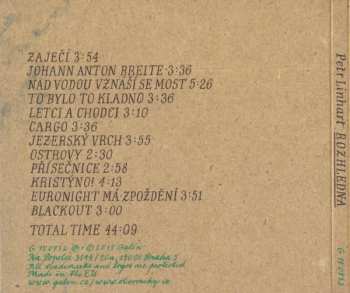 ZAJEČÍ 3:54
JOHANN ANTON BREITE 3:36
NAD VODOU VZNÁŠÍ SE MOST 5:26
TO BYLO TO KLADNO 3:36
LETCI A CHODCI 3:10
CARGO 3:36
JEZERSKÝ VRCH 3:55
OSTROVY 2:30
PŘÍSEČNICE 2:58
KRISTÝNO! 4:13
EURONIGHT MÁ ZPOŽDĚNÍ 3:51
BLACKOUT 3:00
TOTAL TIME 44:09
℗ © 2015 Galén
Na Popelce
All trademarks and logos are protected
Made in the EU
www.galen.cz
Petr Linhart ROZHLEDNA